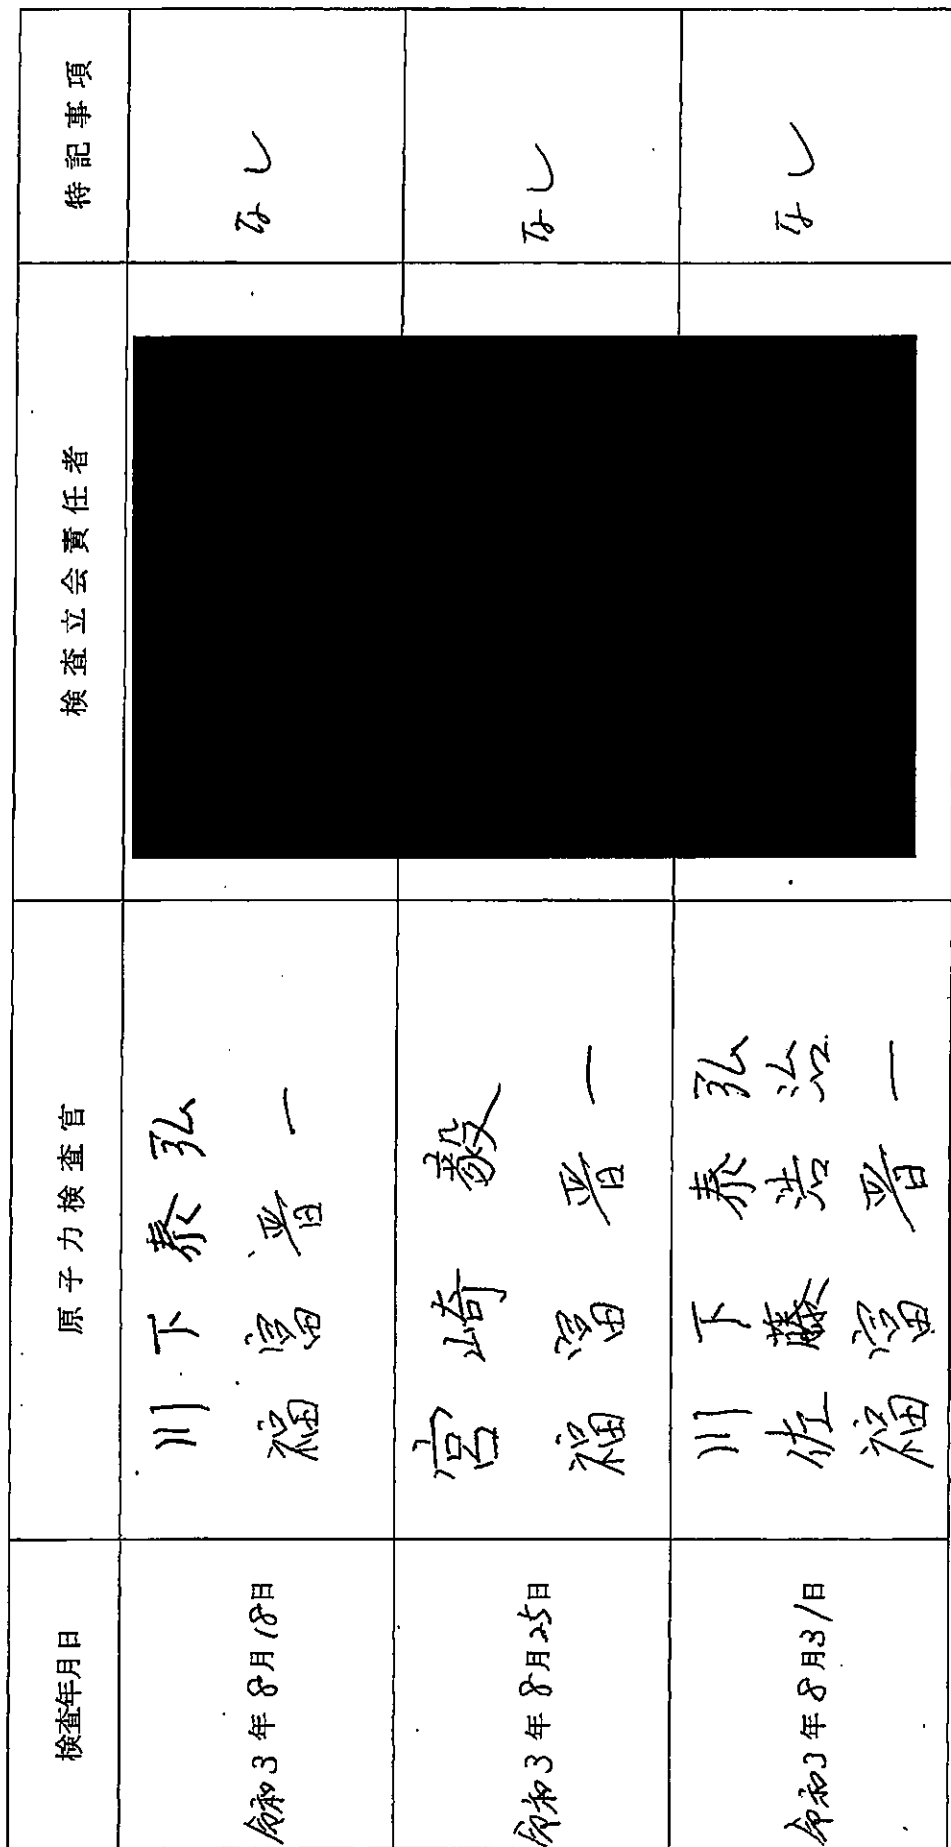 検査年月日 原子力検査官 検査立会責任者 特記事項
令和3年8月18日 川下泰弘 なし
福冨晋一
令和3年8月25日 宮崎毅 なし
福冨晋一
令和3年8月31日 川下泰弘 なし
佐藤浩治
福冨晋一